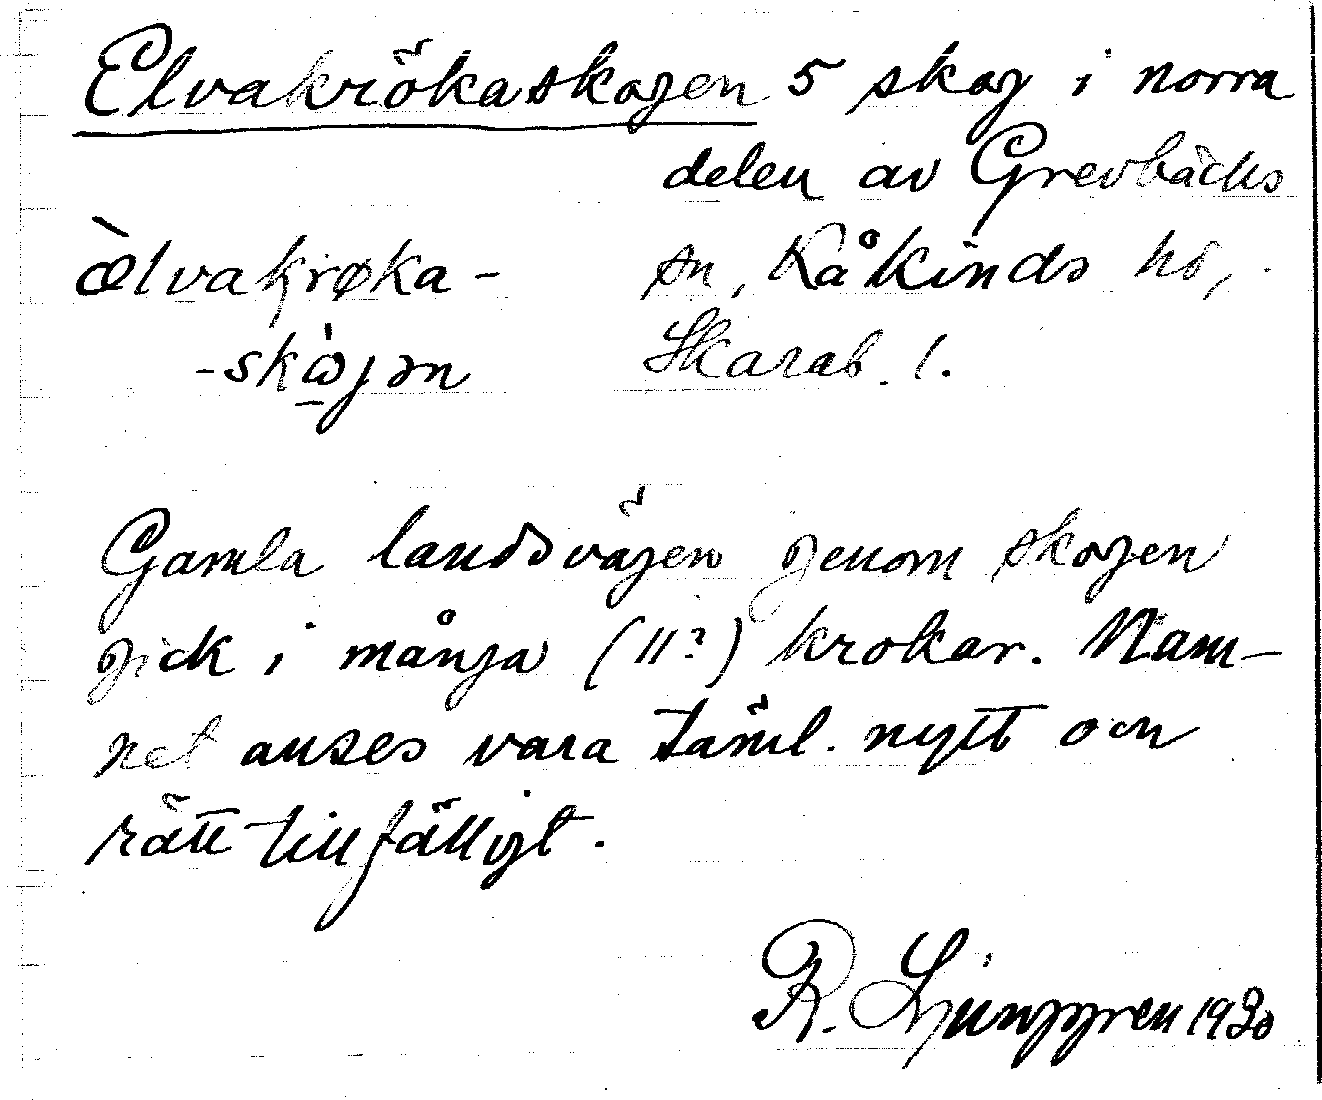 Elvakrökaskogen 5 skog i norra
delen av Grevbäcks
æ̀lvakrøka- sn, Kåkinds hd,
-skɷ̀gən Skarab. l.
Gamla landsvägen genom skogen
gick i många (11?) krokar. Nam-
net anses vara täml. nytt och
rätt tillfälligt.
R. Ljunggren 1930